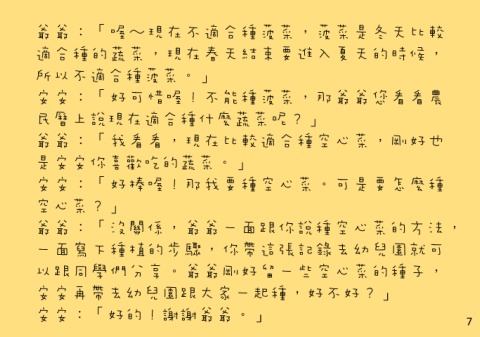 爺爺：「喔～現在不適合種菠菜，菠菜是冬天比較
適合種的蔬菜，現在春天結束要進入夏天的時候，
所以不適合種菠菜。」
安安：「好可惜喔！不能種菠菜，那爺爺您看看農
民曆上說現在適合種什麼蔬菜呢？」
爺爺：「我看看，現在比較適合種空心菜，剛好也
是安安你喜歡吃的蔬菜。」
安安：「好棒喔！那我要種空心菜。可是要怎麼種
空心菜？」
爺爺：「沒關係，爺爺一面跟你說種空心菜的方法，
一面寫下種植的步驟，你帶這張記錄去幼兒園就可
以跟同學們分享。爺爺剛好留一些空心菜的種子，
安安再帶去幼兒園跟大家一起種，好不好？」
安安：「好的！謝謝爺爺。」
7